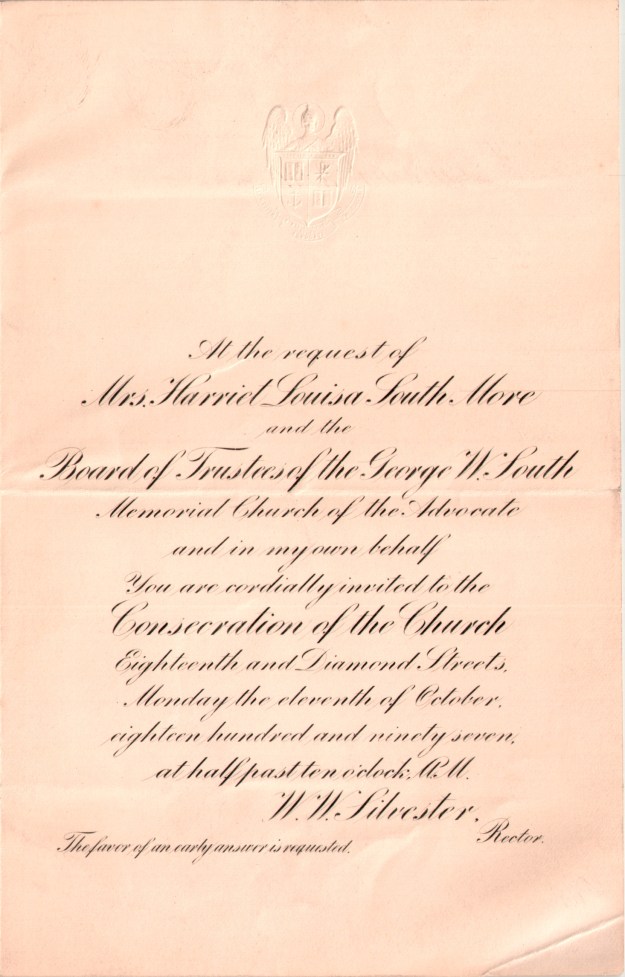 At the request of
Mrs. Harriet Louisa South More
and the
Board of Trustees of the George W. South
Memorial Church of the Advocate
and in my own behalf
You are cordially invited to the
Consecration of the Church
Eighteenth and Diamond Streets,
Monday the eleventh of October,
eighteen hundred and ninety seven,
at half past ten o'clock, A.M.
W. W. Silvester,
Rector.
The favor of an early answer is requested.